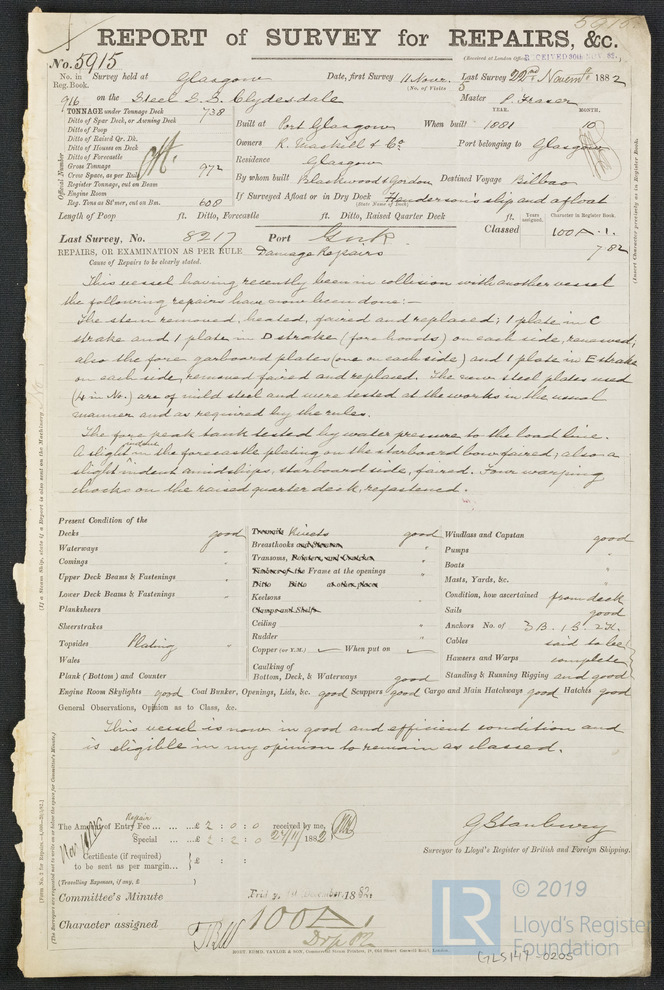 5915
REPORT of SURVEY for REPAIRS, &c.
(Received at London Office RECEIVED 30TH NOV. 82
No. 5915
No. in Survey held at Glasgow Date, first Survey 11 Novr. Last Survey 22nd Novembr 1882
Reg. Book. (No. of Visits 5
916 on the Steel S.S. Clydesdale Master P. Fraser
TONNAGE under Tonnage Deck 738
Ditto of Spar Deck, or Awning Deck
Ditto of Poop
Ditto of Raised Qr. Dk.
Ditto of Houses on Deck
Ditto of Forecastle
Gross Tonnage 972
Crew Space, as per Rule
Register Tonnage, cut on Beam
Engine Room
Reg. Tons as St'mer, cut on Bm. 608
Official Number
YEAR. MONTH.
Built at Port Glasgow When built 1881 10
Owners R. Mackill & Co. Port belonging to Glasgow
Residence Glasgow
By whom built Blackwood & Gordon Destined Voyage Bilbao
If Surveyed Afloat or in Dry Dock Henderson's slip and afloat
(State Name of Dock)
Length of Poop ft. Ditto, Forecastle ft. Ditto, Raised Quarter Deck ft.
Years assigned. Character in Register Book.
Last Survey, No. 8217 Port Gnk. Classed 100A.1.
7.82
REPAIRS, OR EXAMINATION AS PER RULE Damage Repairs
Cause of Repairs to be clearly stated.
This vessel having recently been in collision with another vessel
the following repairs have now been done:—
The stem removed, heated, faired and replaced; 1 plate in C
strake and 1 plate in D strake (fore hoods) on each side, renewed;
also the fore garboard plates (one on each side) and 1 plate in E strake
on each side, removed faired and replaced. The new steel plates used
(4 in No.) are of mild steel and were tested at the works in the usual
manner and as required by the rules.
The fore peak tank tested by water pressure to the load line.
A slight indent in the forecastle plating on the starboard bow faired; also a
slight indent amidships, starboard side, faired. Four warping
chocks on the raised quarter deck, refastened.
Present Condition of the
Decks good
Waterways "
Comings "
Upper Deck Beams & Fastenings "
Lower Deck Beams & Fastenings "
Planksheers
Sheerstrakes "
Topsides Plating "
Wales
Plank (Bottom) and Counter "
Treenails Rivets good
Breasthooks and Stemson "
Transoms, Pointers, and Crutches "
Timbers of the Frame at the openings "
Ditto Ditto at other places
Keelsons "
Clamps and Shelfs
Ceiling "
Rudder "
Copper (or Y.M.) When put on
Caulking of
Bottom, Deck, & Waterways good
Windlass and Capstan good
Pumps "
Boats "
Masts, Yards, &c. "
Condition, how ascertained from deck
Sails good
Anchors No. of 3B. 1S. 2K.
Cables said to be
Hawsers and Warps complete
Standing & Running Rigging and good
Engine Room Skylights good Coal Bunker, Openings, Lids, &c. good Scuppers good Cargo and Main Hatchways good Hatches good
General Observations, Opinion as to Class, &c.
This vessel is now in good and efficient condition and
is eligible in my opinion to remain as classed.
Repair
The Amount of Entry Fee ... ... ... £ 2 : 0 : 0 received by me,
Special ... ... £ 2 : 2 : 0 27/11/1882
Certificate (if required)
to be sent as per margin... £ : :
(Travelling Expenses, if any, £ )
G Stanbury
Surveyor to Lloyd's Register of British and Foreign Shipping.
Committee's Minute Friday, 1st December, 1882.
Character assigned 100A1
© 2019
LR
Lloyd's Register
Foundation
GLS147-0205